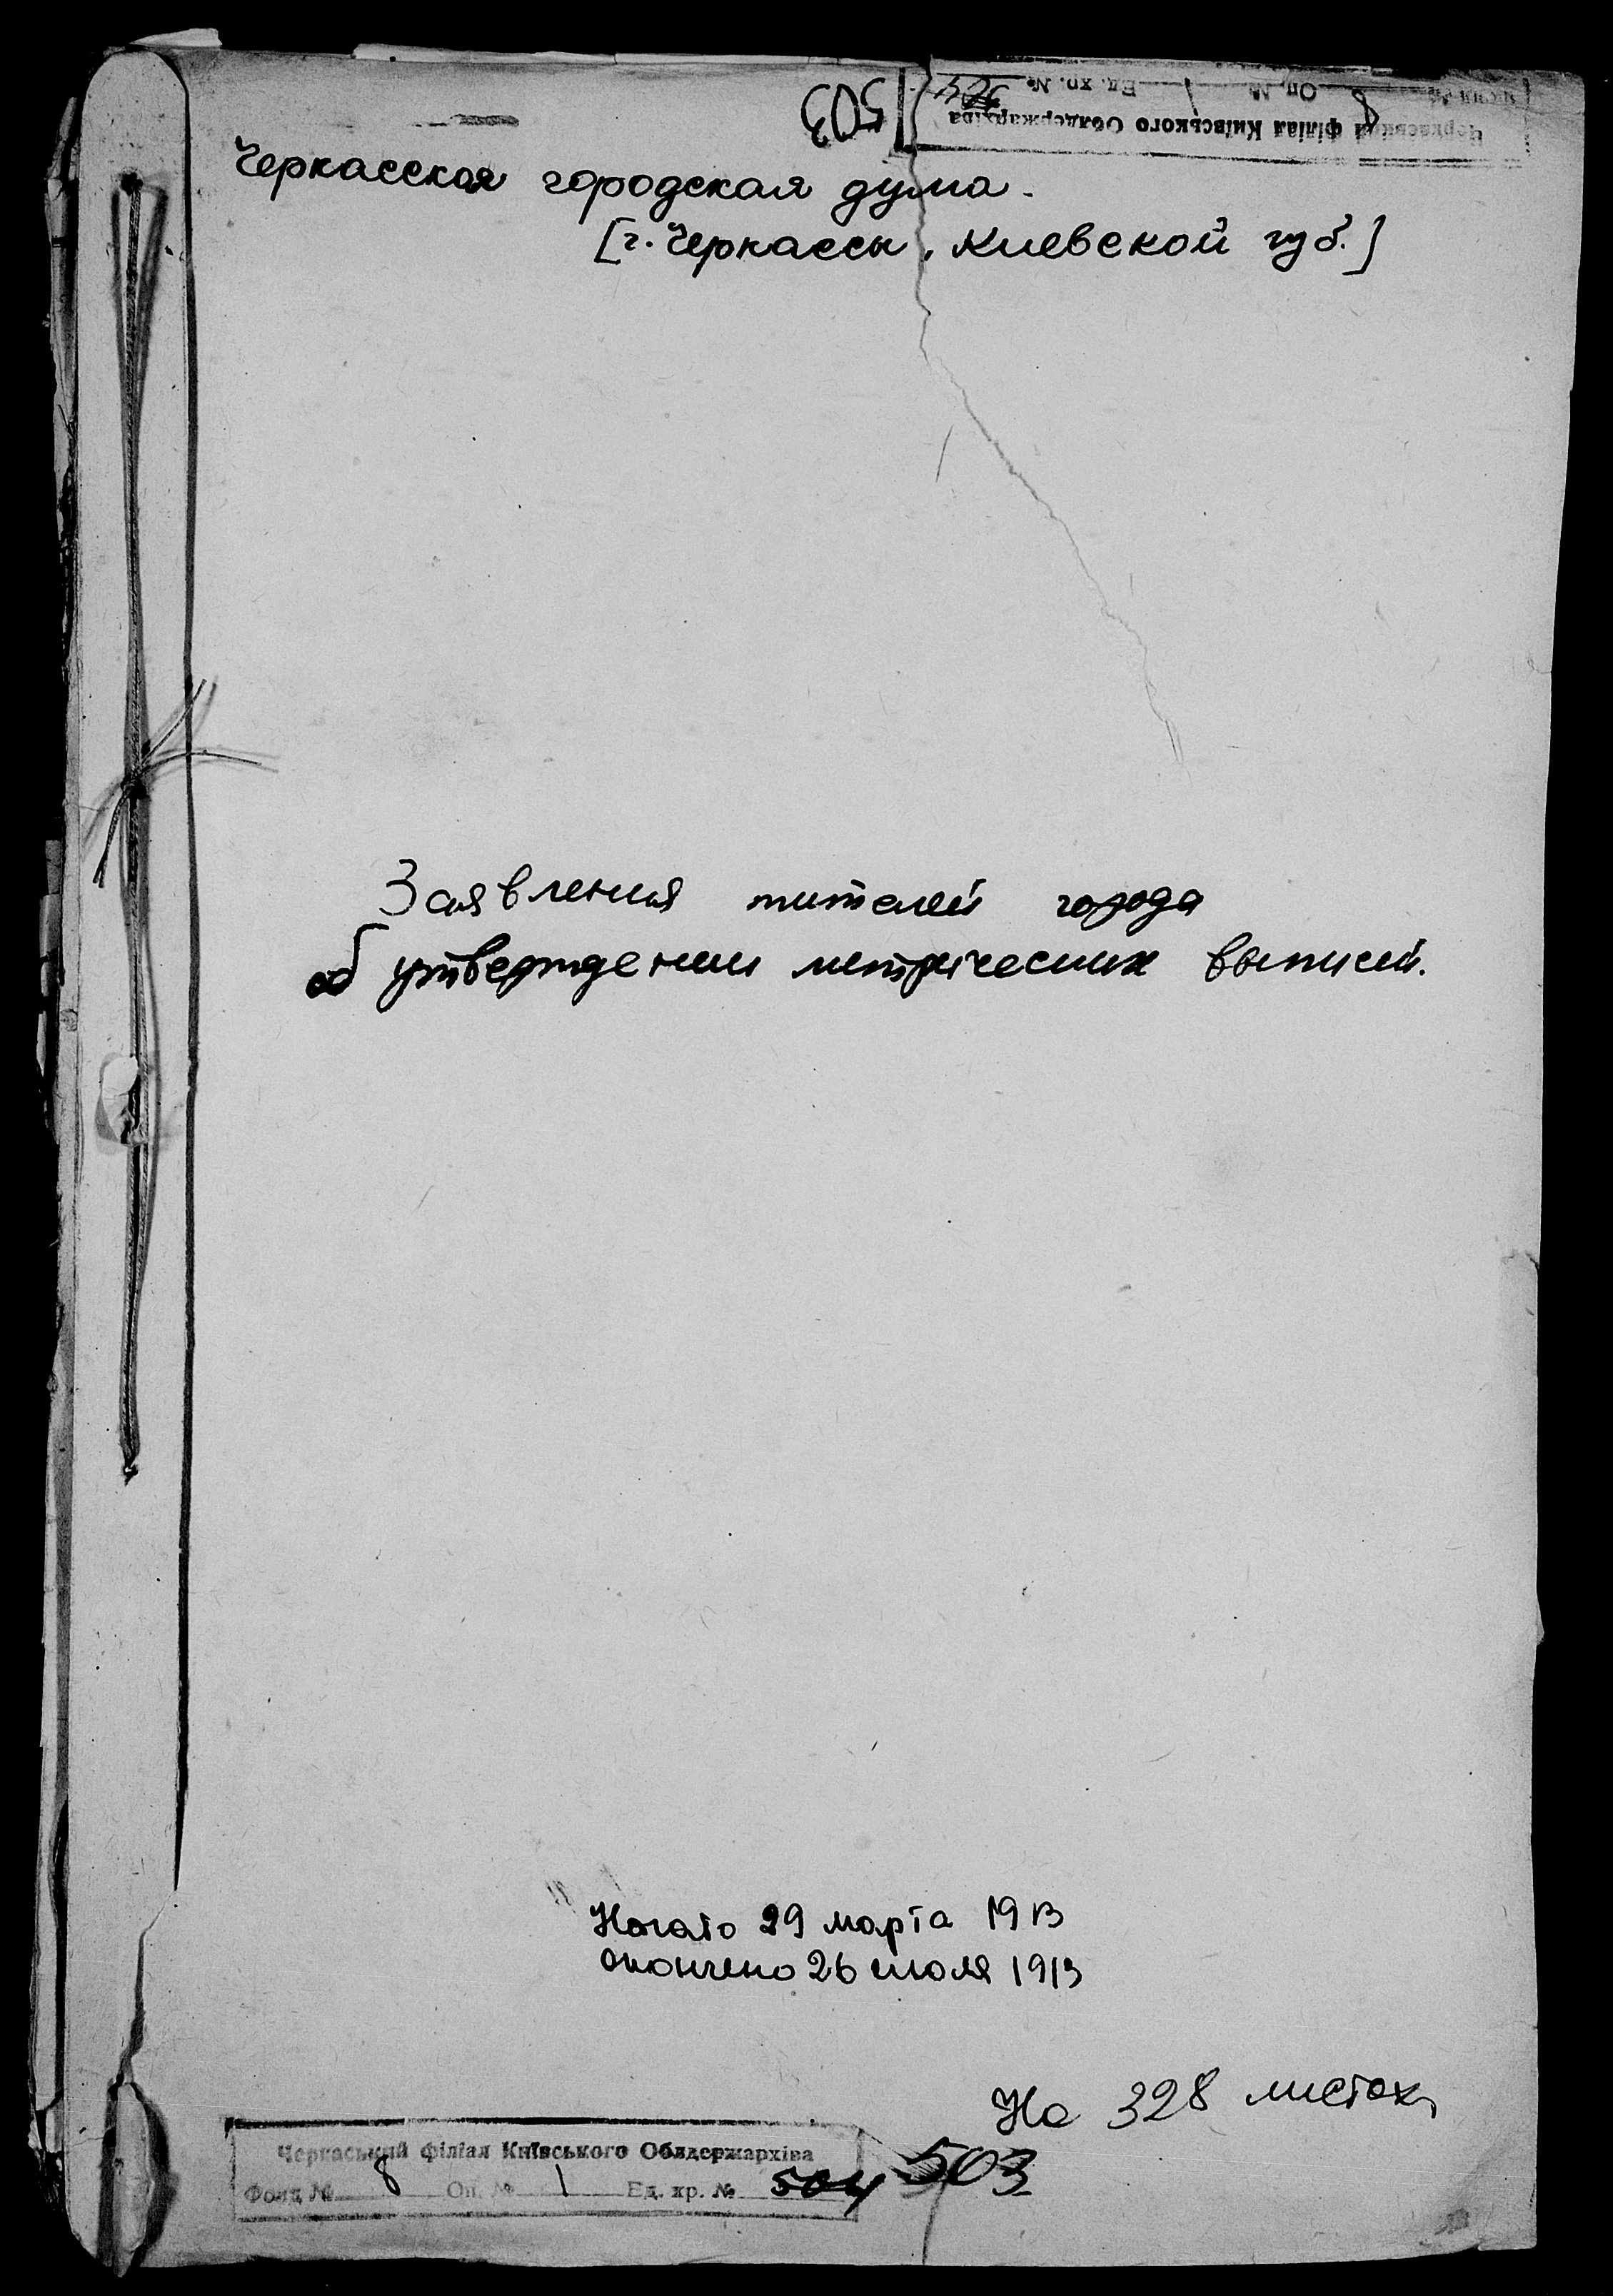 503
Черкаський філіал Київського Облдержархіва
Фонд № 8 Оп. № 1 Ед. хр. № 504
Черкасская городская дума.
[г. Черкассы, Киевской губ.]
Заявления жителей города
об утверждении метрических выписей.
Начато 29 марта 1913
окончено 26 июля 1913
На 328 листах
Черкаський філіал Київського Облдержархіва
Фонд № 8 Оп. № 1 Ед. хр. № 504 503